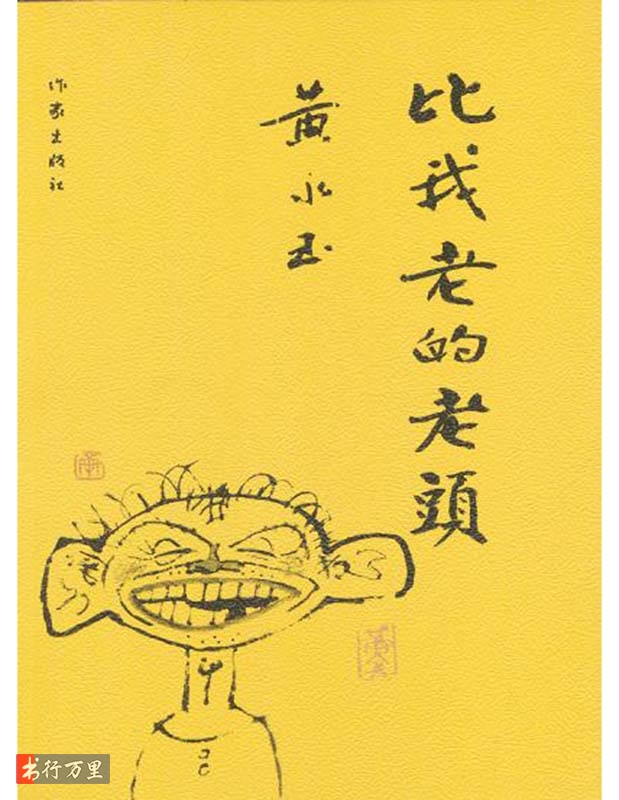 比我老的老頭
黄永玉
作家出版社
书行万里